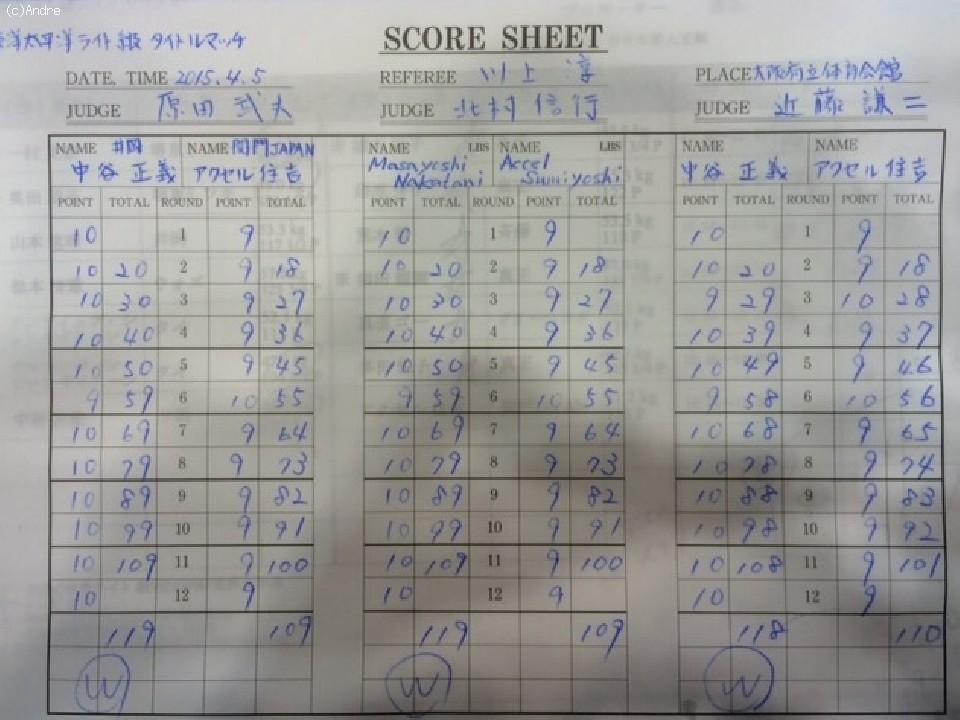 (c)Andre
洋太平洋ライト級 タイトルマッチ
SCORE SHEET
DATE, TIME 2015.4.5 REFEREE 川上 淳 PLACE 大阪府立体育会館
JUDGE 原田 武夫 JUDGE 北村 信行 JUDGE 近藤 謙二
NAME 井岡 NAME 関門JAPAN NAME LBS NAME LBS NAME NAME
中谷 正義 アクセル 住吉 Masayoshi Nakatani Accel Sumiyoshi 中谷 正義 アクセル 住吉
POINT TOTAL ROUND POINT TOTAL POINT TOTAL ROUND POINT TOTAL POINT TOTAL ROUND POINT TOTAL
10 1 9 10 1 9 10 1 9
10 20 2 9 18 10 20 2 9 18 10 20 2 9 18
10 30 3 9 27 10 30 3 9 27 9 29 3 10 28
10 40 4 9 36 10 40 4 9 36 10 39 4 9 37
10 50 5 9 45 10 50 5 9 45 10 49 5 9 46
9 59 6 10 55 9 59 6 10 55 9 58 6 10 56
10 69 7 9 64 10 69 7 9 64 10 68 7 9 65
10 79 8 9 73 10 79 8 9 73 10 78 8 9 74
10 89 9 9 82 10 89 9 9 82 10 88 9 9 83
10 99 10 9 91 10 99 10 9 91 10 98 10 9 92
10 109 11 9 100 10 109 11 9 100 10 108 11 9 101
10 12 9 10 12 9 10 12 9
119 109 119 109 118 110
W W W